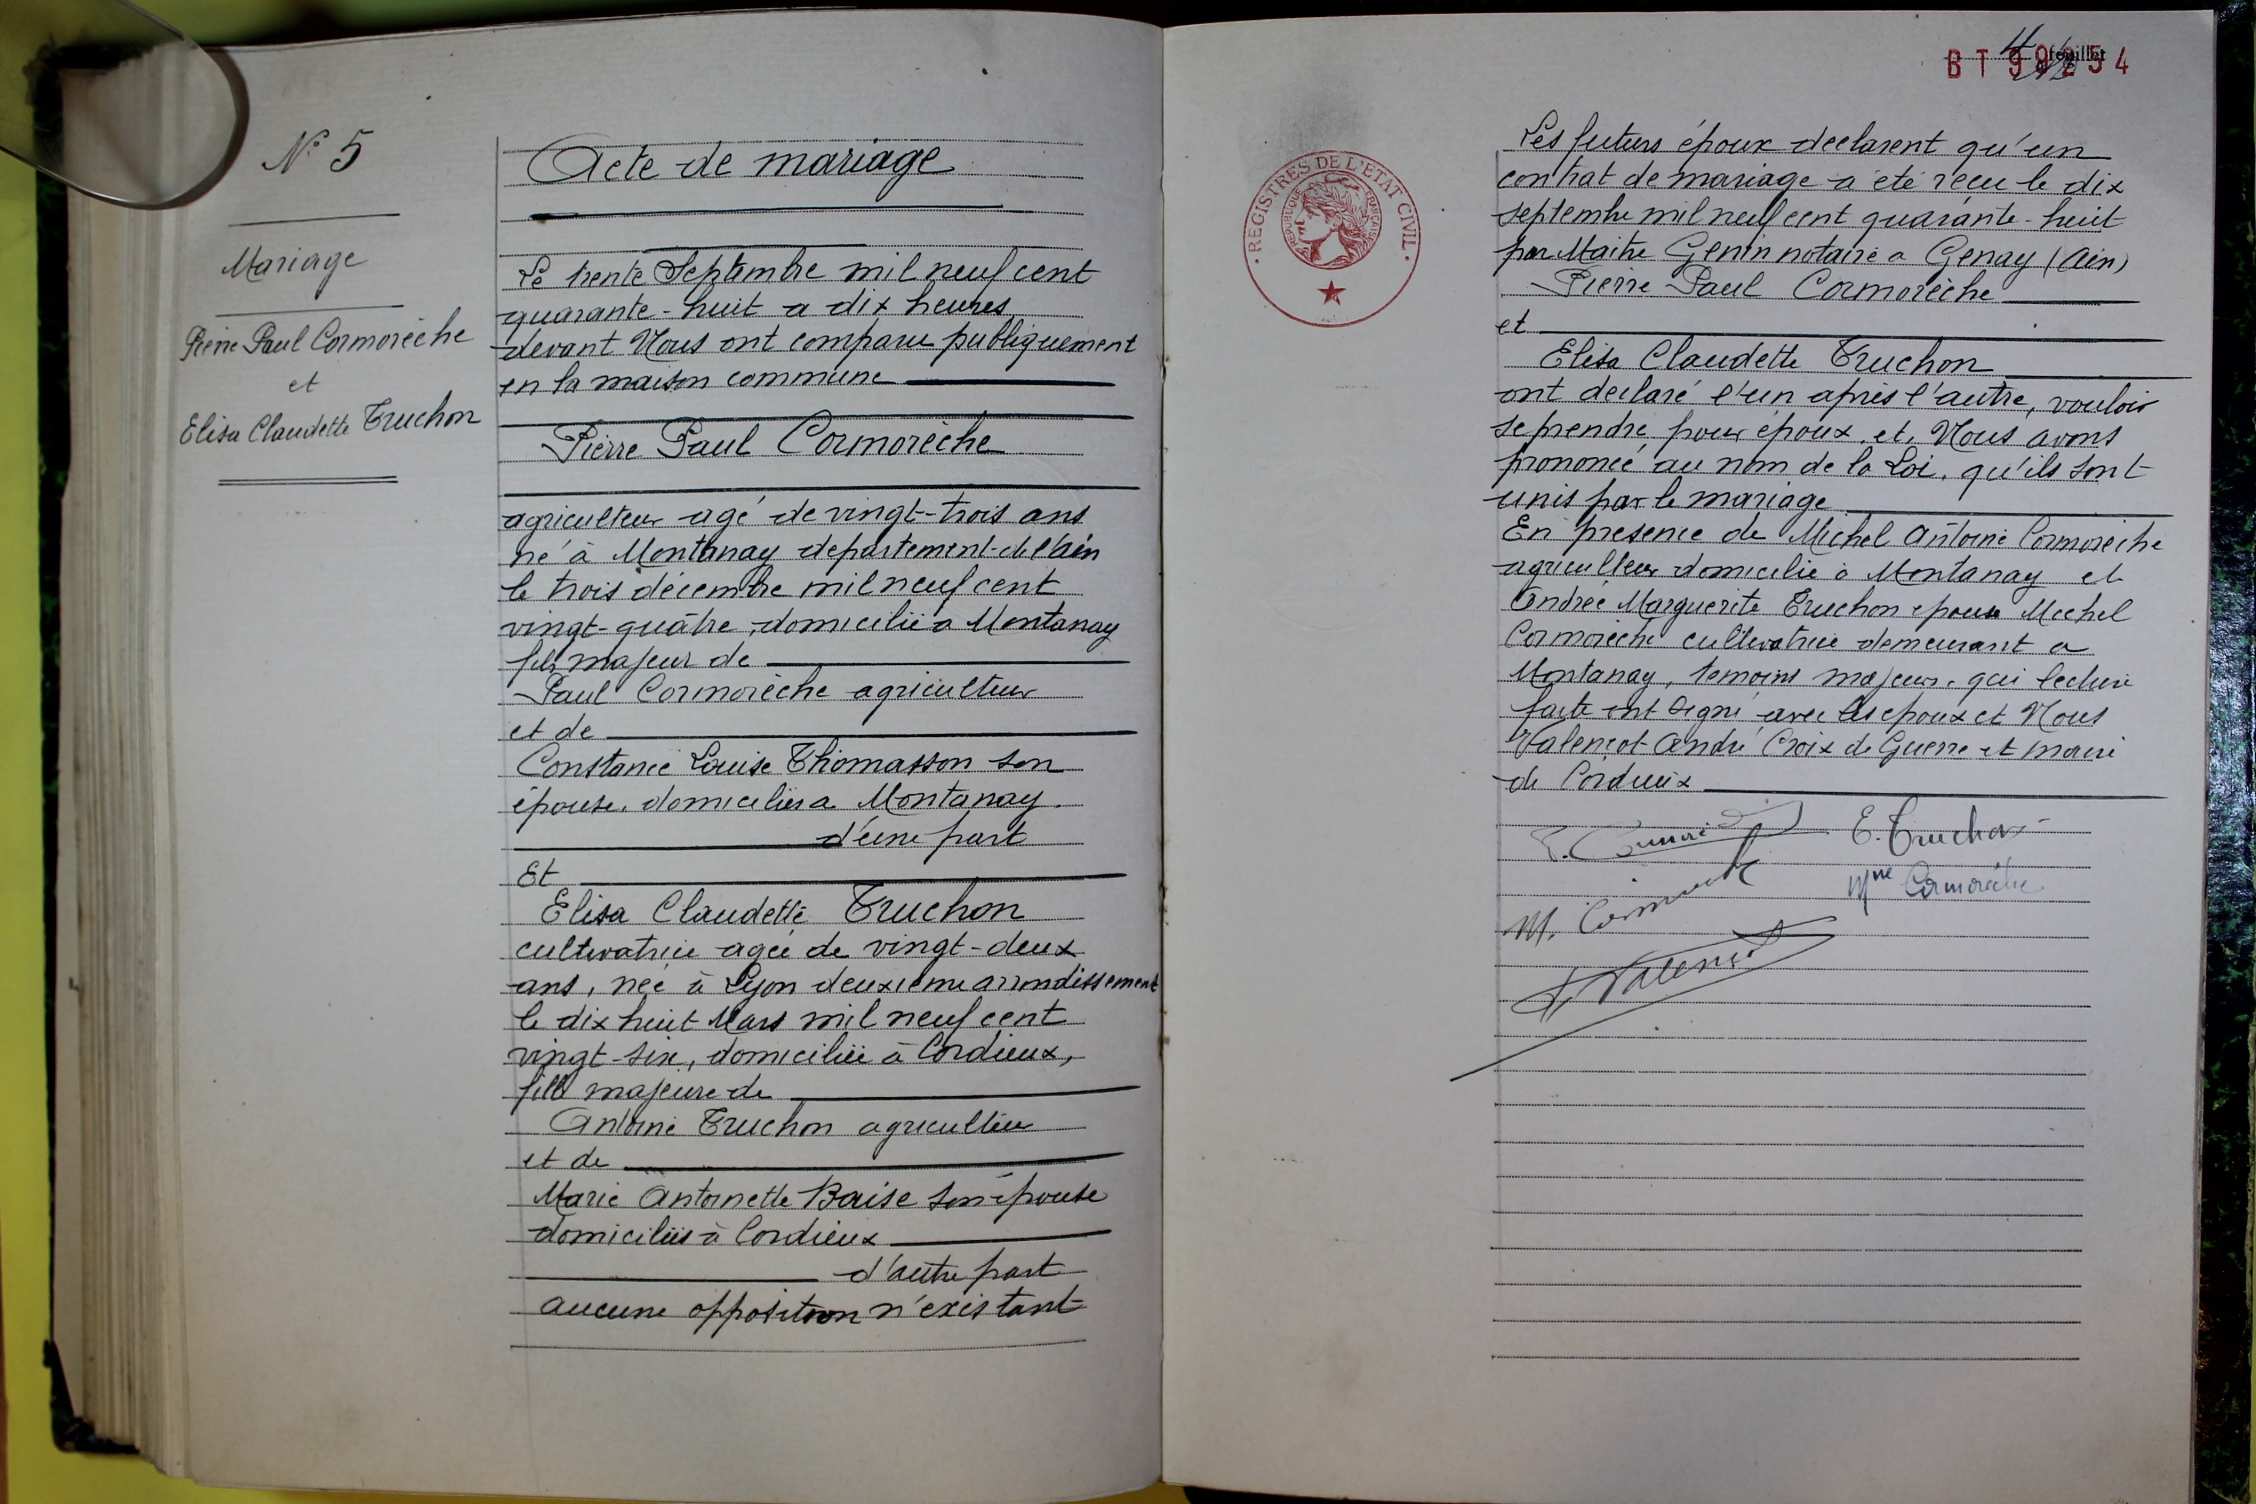 N° 5
Mariage
Pierre Paul Cormorèche
et
Elisa Claudette Truchon
Acte de mariage
Le trente Septembre mil neuf cent
quarante-huit a dix heures
devant Nous ont comparu publiquement
en la maison commune
Pierre Paul Cormorèche
agriculteur agé de vingt-trois ans
né à Montanay departement de l'ain
le trois décembre mil neuf cent
vingt-quatre, domicilié a Montanay
fils majeur de
Paul Cormorèche agriculteur
et de
Constance Louise Thomasson son
épouse, domiciliés a Montanay.
d'une part
Et
Elisa Claudette Truchon
cultivatrice agée de vingt-deux
ans, née à Lyon deuxième arrondissement
le dix huit Mars mil neuf cent
vingt-six, domiciliée à Cordieux,
fille majeure de
Antoine Truchon agriculteur
et de
Marie Antoinette Baise son épouse
domiciliés à Cordieux
d'autre part
aucune opposition n'existant
feuillet
BT 99254
REGISTRES DE L'ETAT CIVIL
REPUBLIQUE FRANÇAISE
Les futurs époux declarent qu'un
contrat de mariage a été réçu le dix
septembre mil neuf cent quarante-huit
par Maitre Genin notaire a Genay (Ain)
Pierre Paul Cormorèche
et
Elisa Claudette Truchon
ont declaré l'un après l'autre, vouloir
se prendre pour époux et, Nous avons
prononcé au nom de la Loi, qu'ils sont
unis par le mariage
En presence de Michel Antoine Cormorèche
agriculteur domicilié à Montanay et
Andrée Marguerite Truchon épouse Michel
Cormorèche cultivatrice demeurant a
Montanay, temoins majeurs, qui lecture
faite ont signé avec les époux et Nous
Valençot André Croix de Guerre et maire
de Cordieux
E. Truchon
Mme Cormorèche
M. Cormorèche
A Valençot